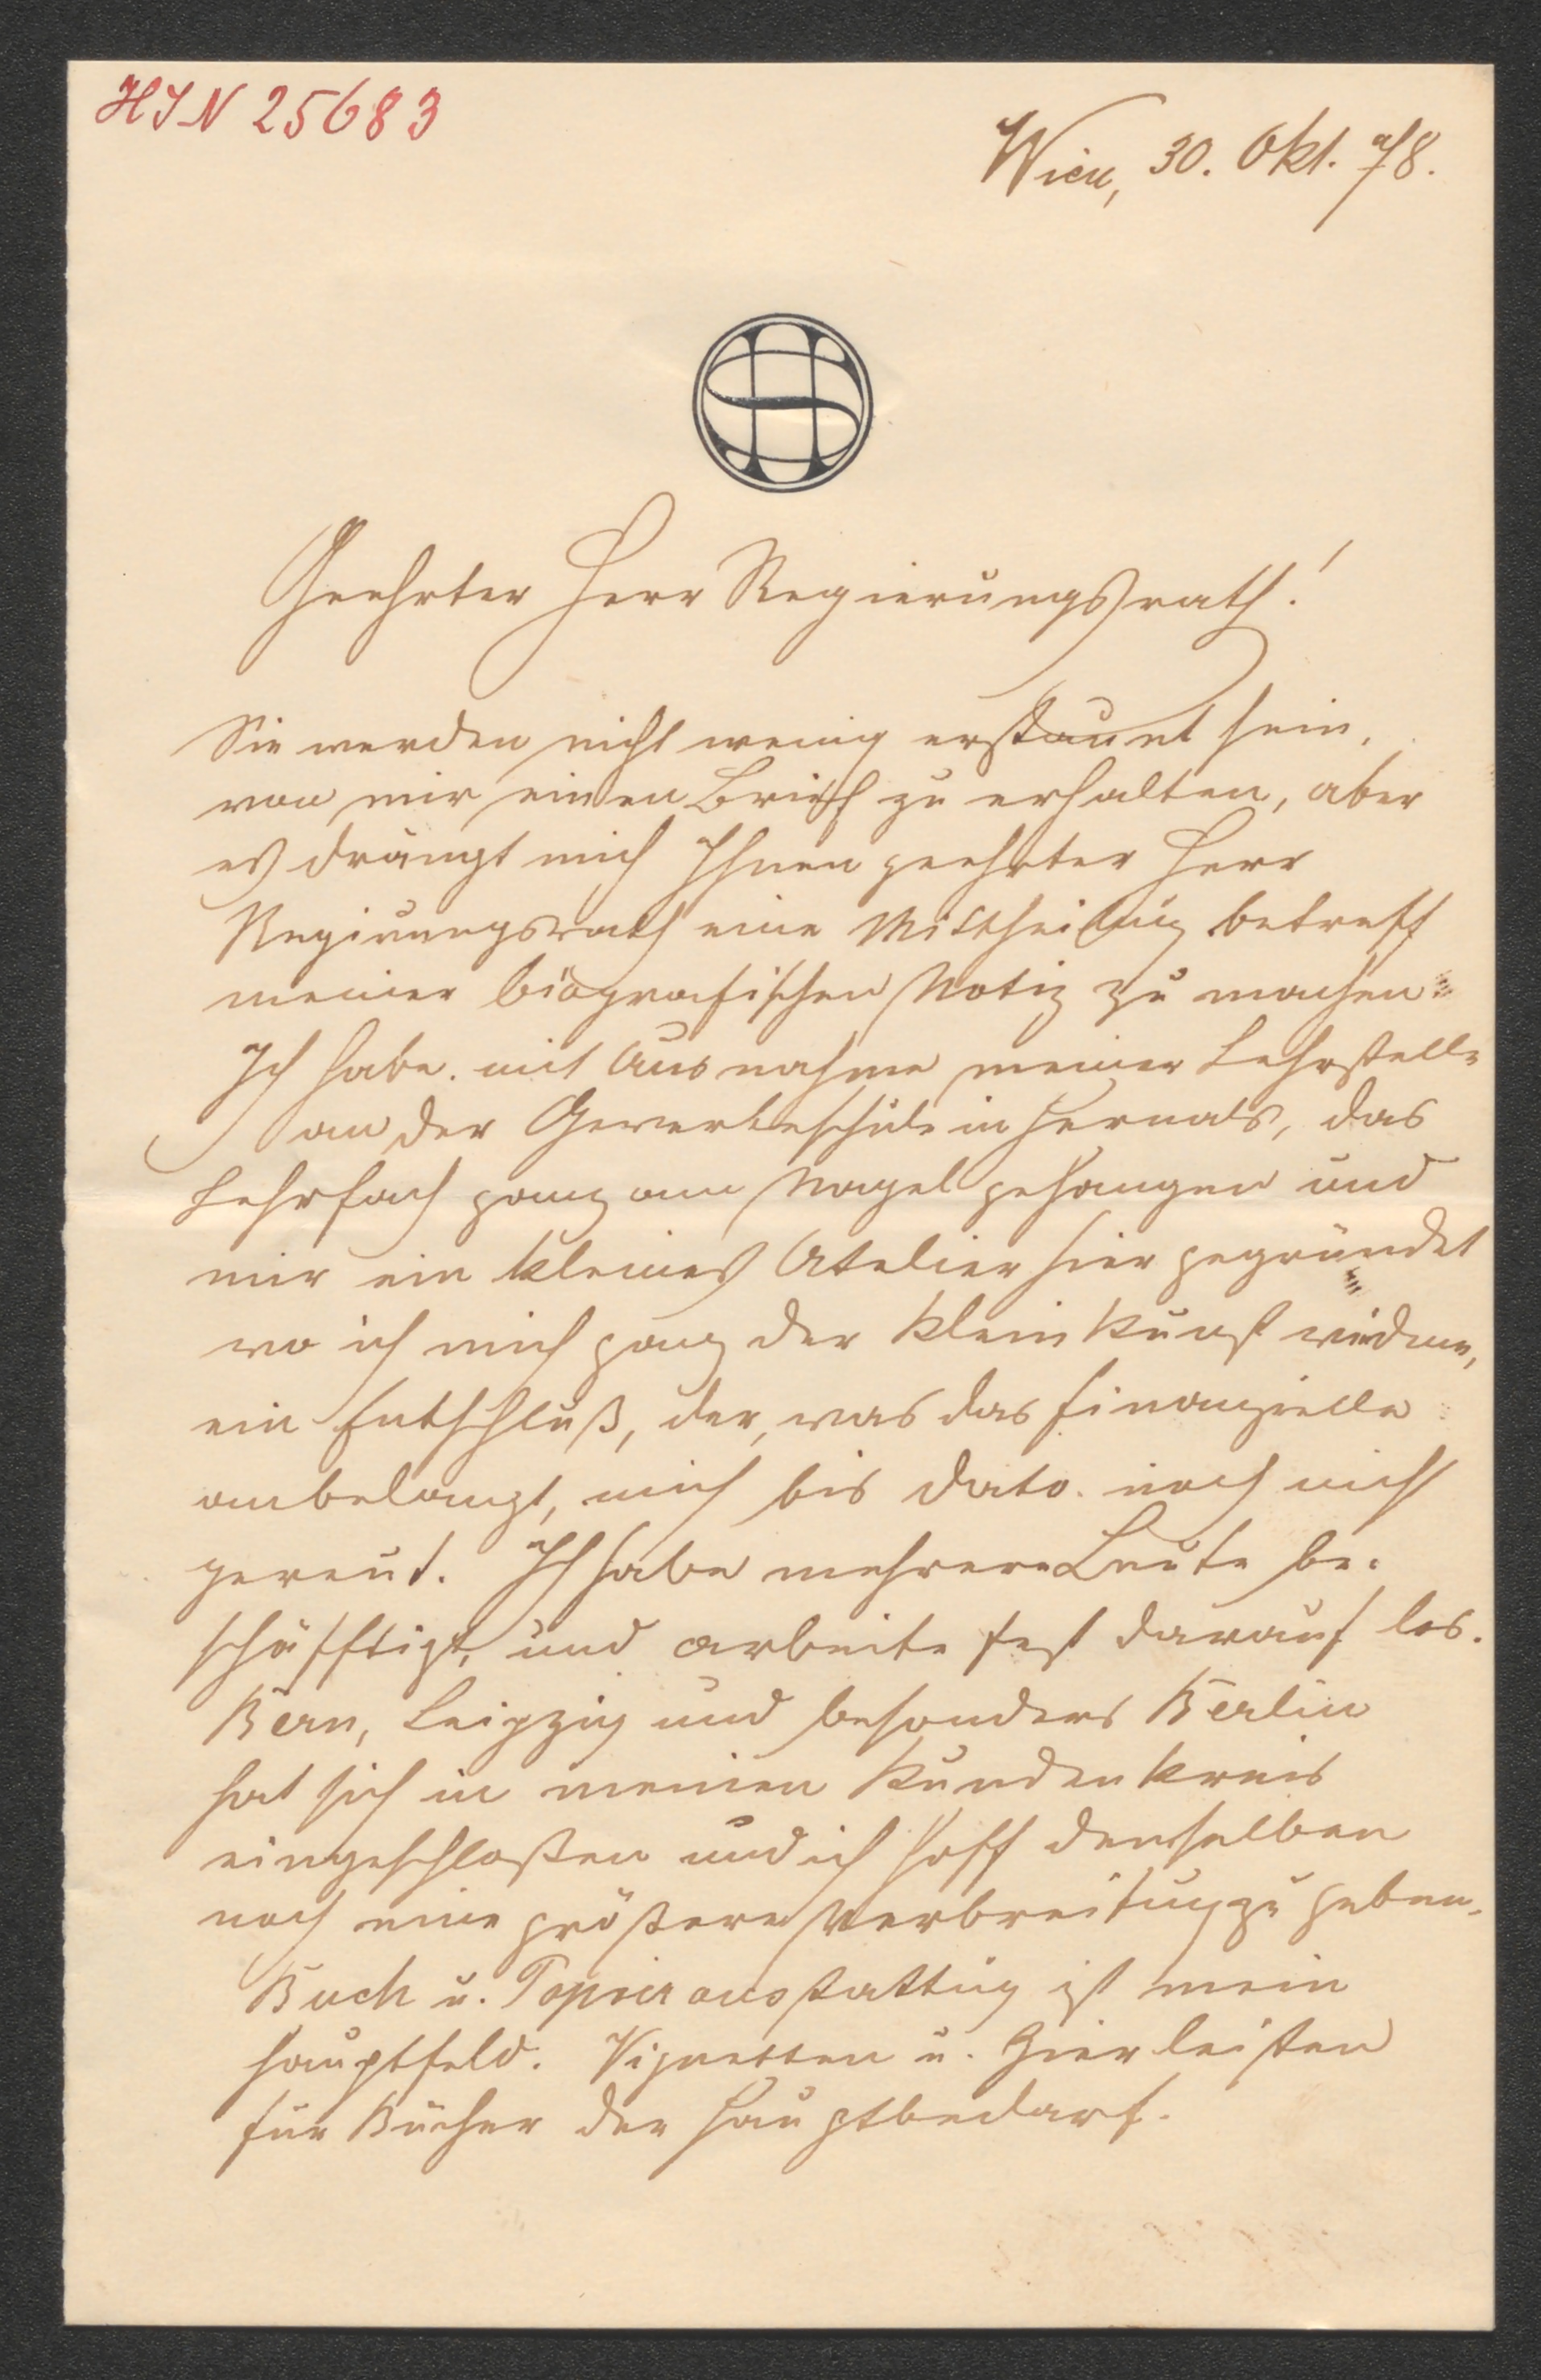 HIN 25683
Wien, 30. Okt. 78.
Geehrter Herr Regierungsrath!
Sie werden nicht wenig erstaunt sein,
von mir einen Brief zu erhalten, aber
es drängt mich Ihnen geehrter Herr
Regirungsrath eine Mittheilung betreff
meiner biografischen Notiz zu machen.
Ich habe mit Ausnahme meiner Lehrstelle
an der Gewerbeschule in Hernals, das
Lehrfach ganz am Nagel gehangen und
mir ein kleines Atelier hier gegründet
wo ich mich ganz der Kleinkunst widme,
ein Entschluß, der, was das finanzielle
anbelangt, mich bis dato noch nicht
gereut. Ich habe mehrere Leute be-
schäfftigt, und arbeite fest darauf los.
Bern, Leipzig und besonders Berlin
hat sich in meinen Kundenkreis
eingeschloßen und ich hoff denselben
noch eine größere Verbreitung zu geben.
Buch u. Papierausstattung ist mein
Hauptfeld. Vignetten u. Zierleisten
für Bücher der Hauptbedarf.